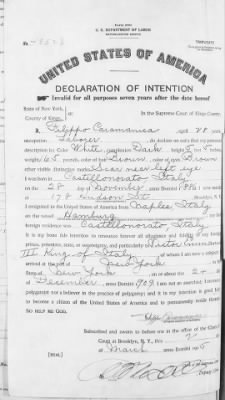 U. S. DEPARTMENT OF LABOR
TRIPLICATE
No.
UNITED STATES OF AMERICA
DECLARATION OF INTENTION
Invalid for all purposes seven years after the date hereof
State of New York,
County of Kings, In the Supreme Court of Kings County.
I, Filippo Caramanica, aged 28 years,
occupation Laborer, do declare on oath that my personal
description is: Color White, complexion Dark, height 5 feet inches,
weight 165 pounds, color of hair Brown, color of eyes Brown
other visible distinctive marks Scar near left eye
Castellonorato Italy
on the 28 day of November, anno Domini 1886; I now reside
at 178 Hudson St. Brooklyn
I emigrated to the United States of America from Naples Italy
on the vessel Hamburg; my last
foreign residence was Castellonorato, Italy
It is my bona fide intention to renounce forever all allegiance and fidelity to any foreign
prince, potentate, state, or sovereignty, and particularly to Victor
III King of Italy, of whom I am now a subject;
arrived at the port of New York, in the
of New York, on or about the 2 day
of December, anno Domini 1909; I am not an anarchist; I am not a
polygamist nor a believer in the practice of polygamy; and it is my intention in good faith
to become a citizen of the United States of America and to permanently reside therein:
SO HELP ME GOD.
Subscribed and sworn to before me in the office of the Clerk of
Court at Brooklyn, N. Y., this
[SEAL] of March, anno Domini 1915